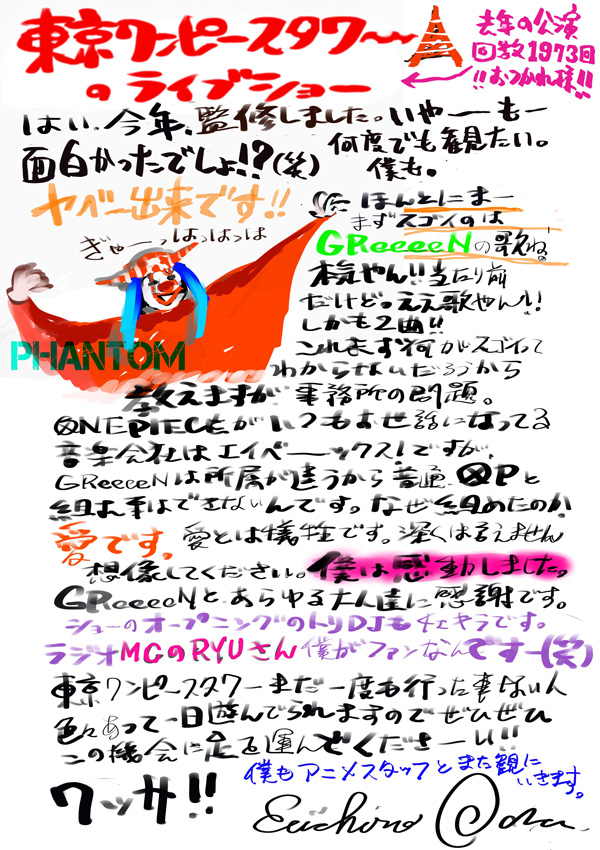 東京ワンピースタワー
のライブショー
去年の公演
回数1973回
!!おつかれ様!!
はい、今年、監修しました。いやーーもー
面白かったでしょ!?(笑)
何度でも観たい。
僕も。
ヤベー出来です!!
ぎゃーっはっはっは
ほんとにまー
まずスゴイのは
GReeeeNの歌ね。
本気やん!!当たり前
だけど。ええ歌やん!!
しかも2曲!!
PHANTOM
これまず何がスゴイって
わからないだろうから
教えますが事務所の問題。
ONE PIECEがいつもお世話になってる
音楽会社はエイベーックス!ですが、
GReeeeNは所属が違うから普通、OPと
組む事はできないんです。なぜ組めたのか
愛です。愛とは犠牲です。深くは言えません
想像してください。僕は感動しました。
GReeeeNと、あらゆる大人達に感謝です。
ショーのオープニングのトリDJもチェキラです。
ラジオMCのRYUさん僕がファンなんですー(笑)
東京ワンピースタワーまだ一度も行った事ない人
色々あって一日遊んでられますのでぜひぜひ
この機会に足を運んでくださーい!!
僕もアニメスタッフとまた観に
いきます。
ワッサ!!
Eiichiro Oda